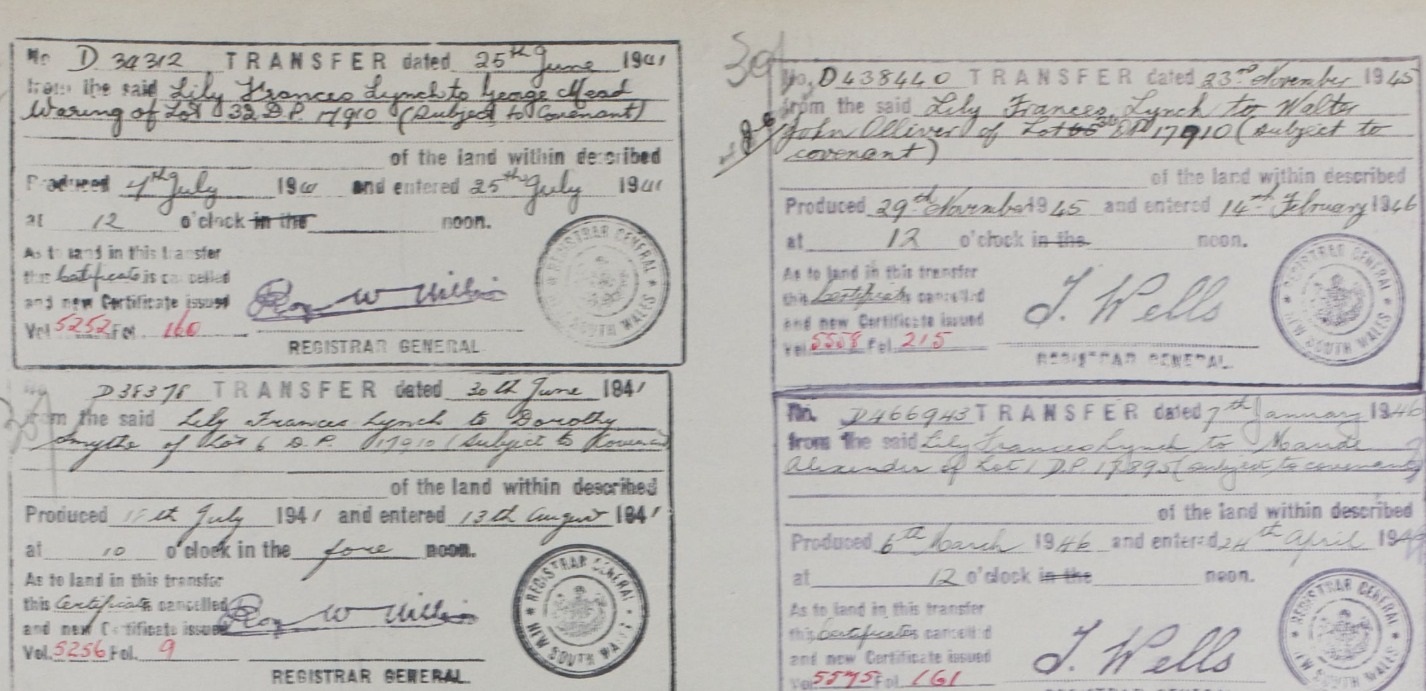 No D 34312 TRANSFER dated 25th June 1941
from the said Lily Frances Lynch to George Mead
Waring of Lot 32 D.P. 17910 (Subject to Covenant)
of the land within described
Produced 4th July 1941 and entered 25th July 1941
at 12 o'clock in the noon.
As to land in this transfer
this Certificate is cancelled
and new Certificate issued
Vol 5252 Fol. 160
REGISTRAR GENERAL
REGISTRAR GENERAL
NEW SOUTH WALES
No D38378 TRANSFER dated 30th June 1941
from the said Lily Frances Lynch to Dorothy
Smythe of Lot 6 D.P. 17910 (Subject to Covenant
of the land within described
Produced July 1941 and entered 13th August 1941
at 10 o'clock in the fore noon.
As to land in this transfer
this Certificate is cancelled
and new Certificate issued
Vol. 5256 Fol. 9
REGISTRAR GENERAL
REGISTRAR GENERAL
NEW SOUTH WALES
No. D438440 TRANSFER dated 23rd November 1945
from the said Lily Frances Lynch to Walter
John Olliver of Lot DP 17910 (subject to
covenant)
of the land within described
Produced 29th November 1945 and entered 14th February 1946
at 12 o'clock in the noon.
As to land in this transfer
this Certificate is cancelled
and new Certificate issued
Vol. 5508 Fol. 215
J. Wells
REGISTRAR GENERAL
REGISTRAR GENERAL
NEW SOUTH WALES
No. D466943 TRANSFER dated 7th January 1946
from the said Lily Frances Lynch to Maude
Alexander of Lot 1 D.P. 17895 (subject to covenant)
of the land within described
Produced 6th March 1946 and entered 24th April 1946
at 12 o'clock in the noon.
As to land in this transfer
this Certificate is cancelled
and new Certificate issued
Vol 5575 Fol. 161
J. Wells
REGISTRAR GENERAL
NEW SOUTH WALES